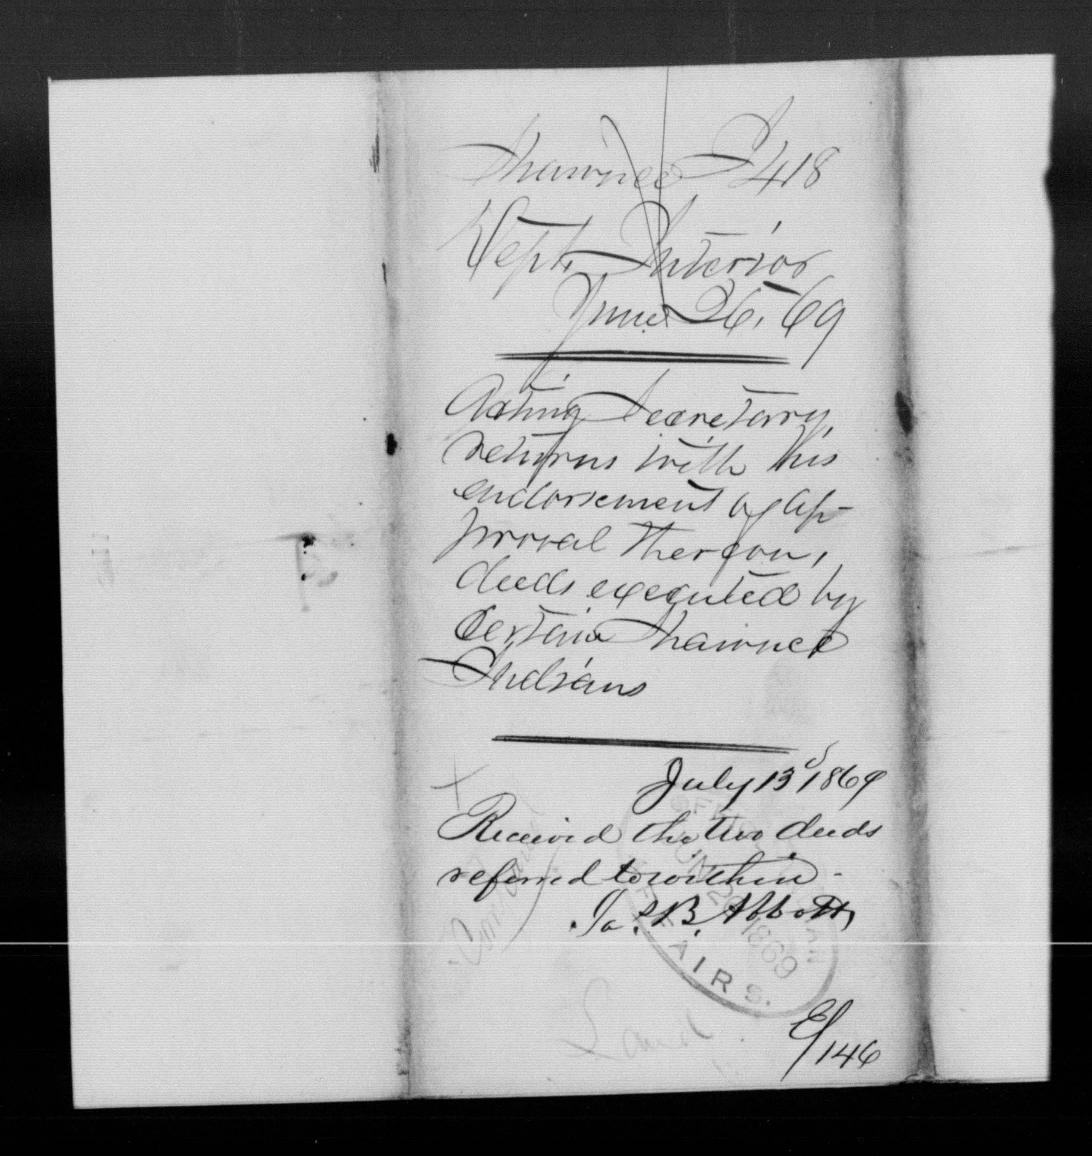 Shawnee I 418
Dept. Interior
June 26, 69
Acting Secretary,
returns with his
endorsement of ap-
proval thereon,
deeds executed by
Certain Shawnee
Indians
July 13 1869
Received the two deeds
referred to within -
Jas. B. Abbott,
OFFICE INDIAN
JUN 1869
AFFAIRS.
Land
E/146